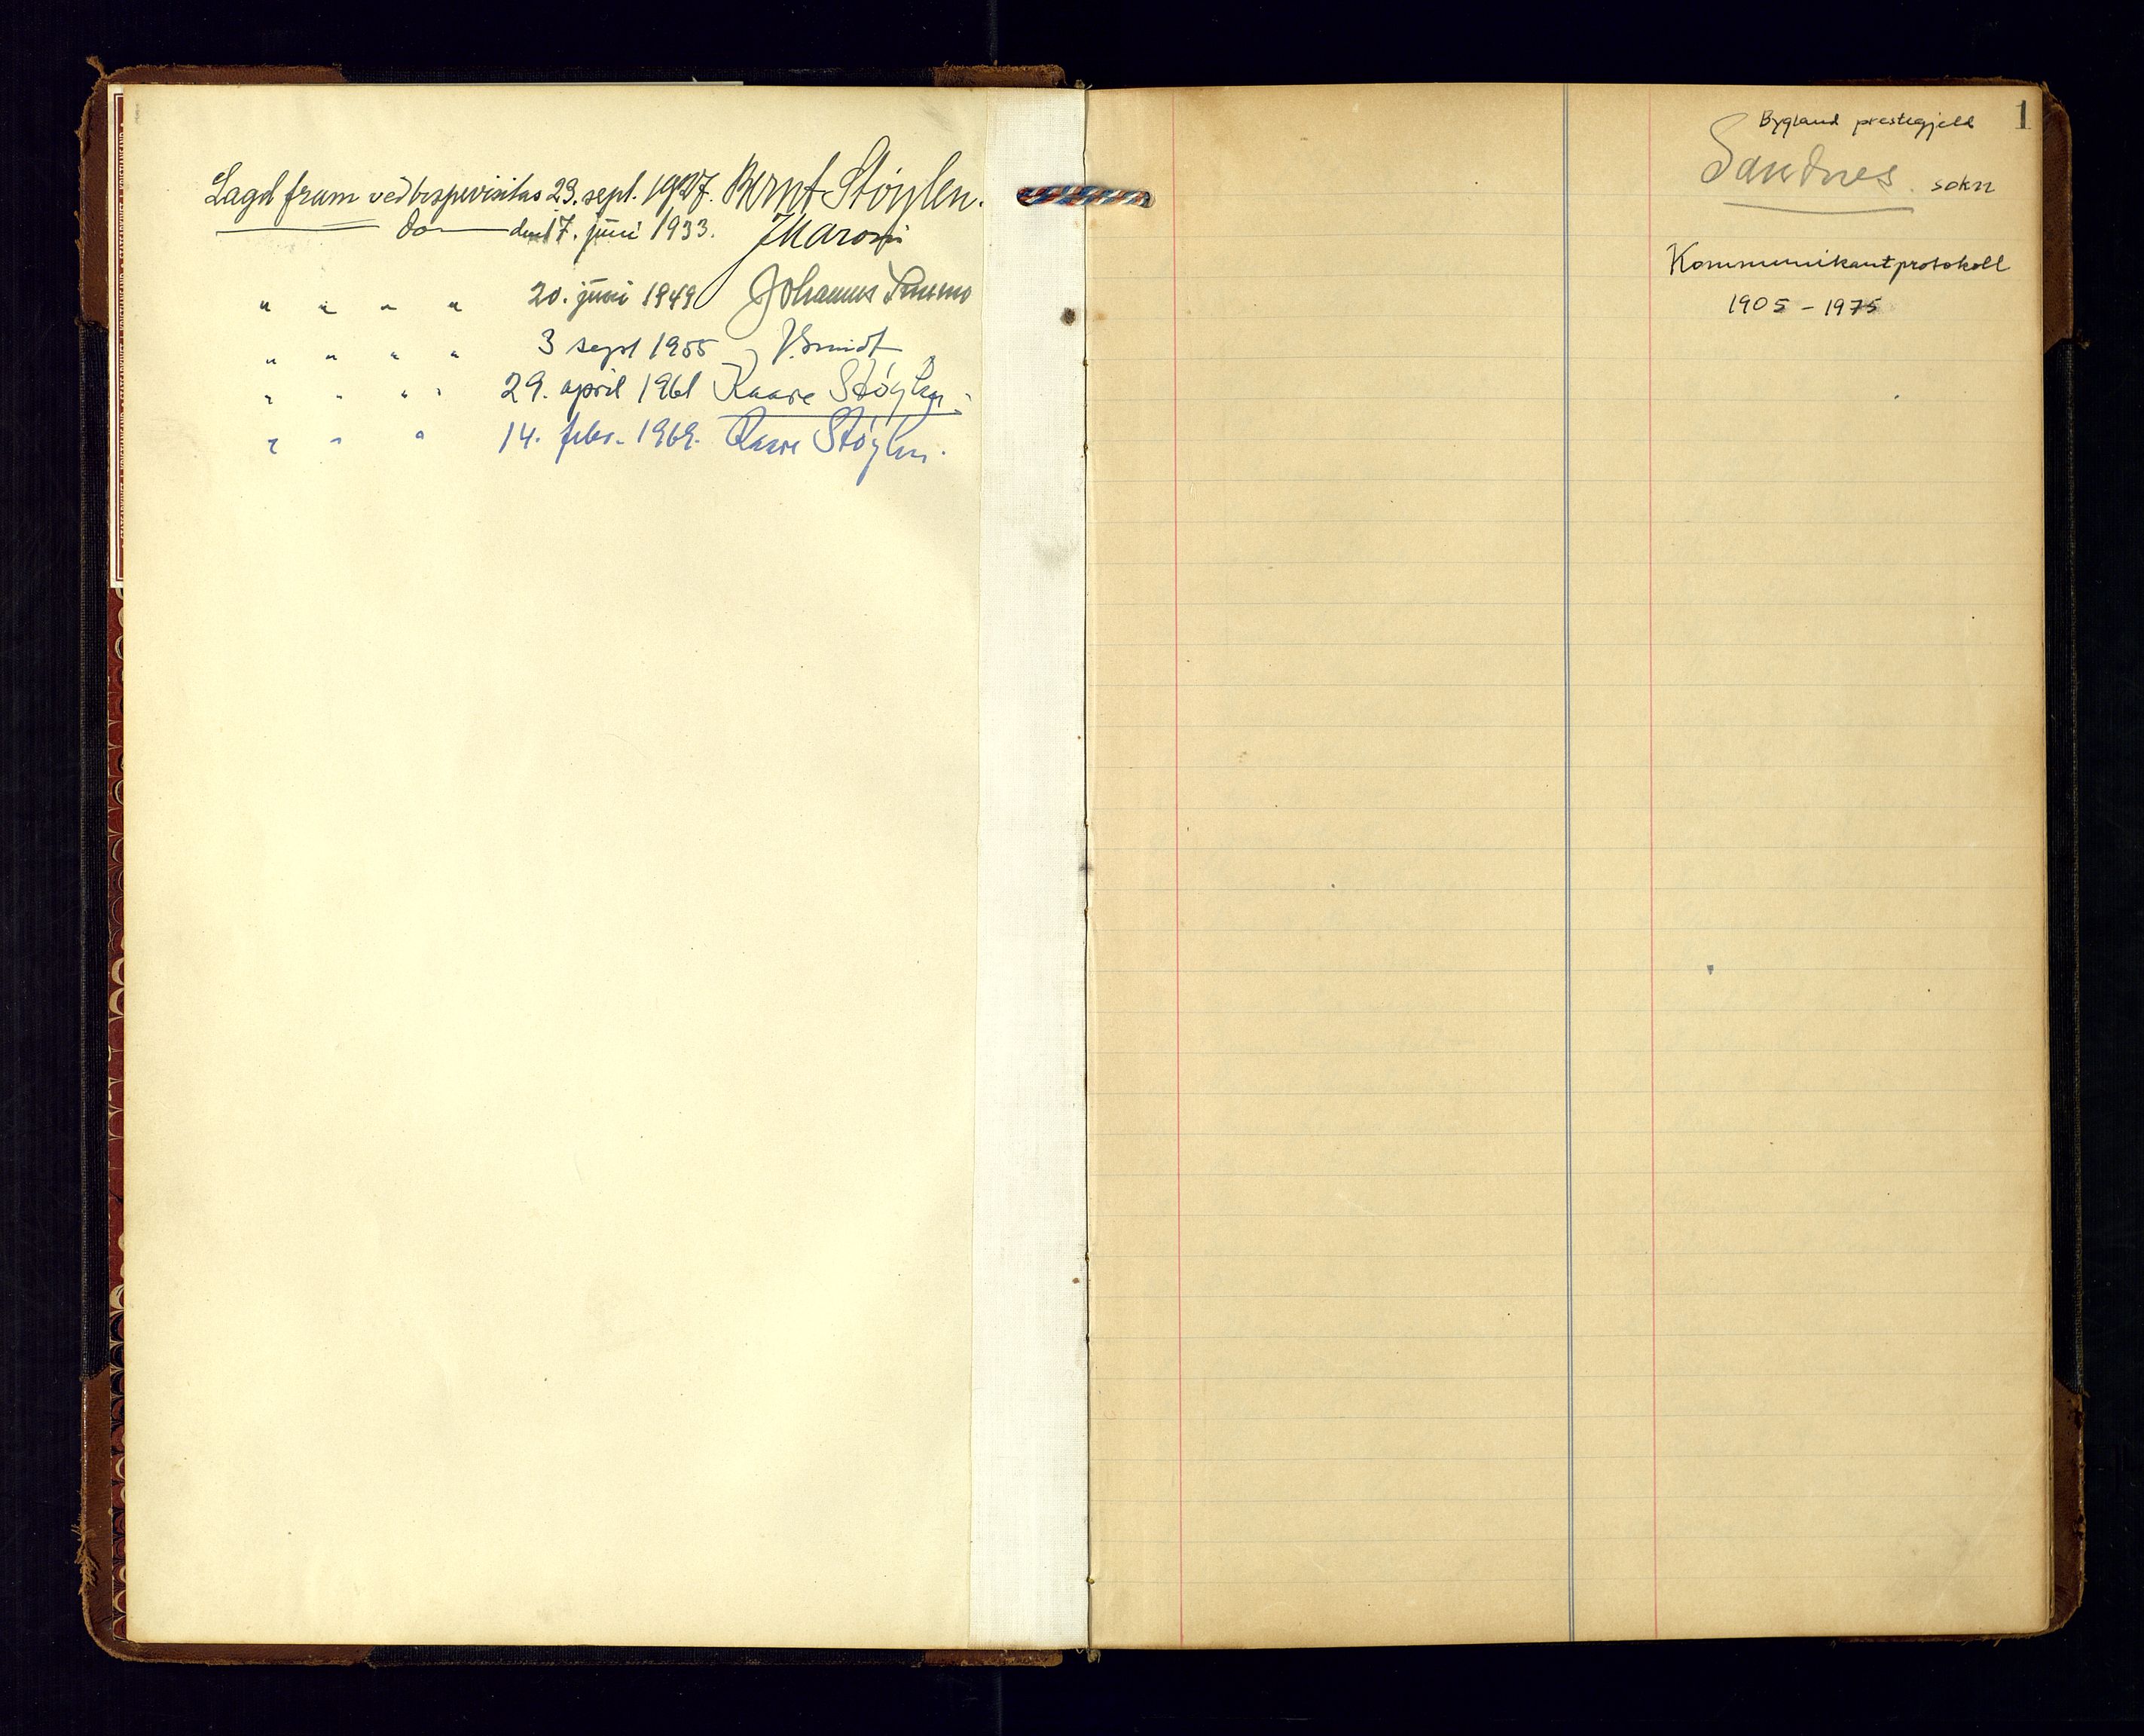 Lagd fram ved bispevisitas 23. sept. 1927. Bernt Støylen.
do den 17. juni 1933. J Maroni
" " " " 20. juni 1949 Johannes Smemo
" " " " 3 sept 1955 J. Smidt
" " " " 29. april 1961 Kaare Støylen.
" " " 14. febr. 1969. Kaare Støylen.
1
Bygland prestegjeld
Sandnes sokn
Kommunikantprotokoll
1905 - 1975